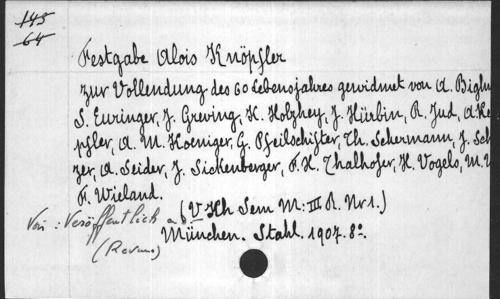 145
64
Festgabe Alois Knöpfler
zur Vollendung des 60 Lebensjahres gewidmet von A. Biglm
S. Euringer, J. Greving, K. Holzhey, J. Hürbin, R. Jud, A. Kn
pfler, A. M. Koeniger, G. Pfeilschifter, Th. Schermann, J. Sch
zer, A. Seider, J. Sickenberger, F. X. Thalhofer, H. Vogels, M. W
F. Wieland.
(V Kh Sem M: III R. Nr 1.)
Veröffentlich
München. Stahl. 1907. 8º.